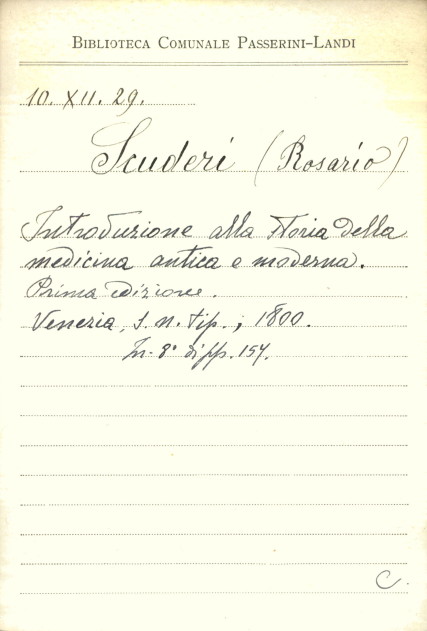 BIBLIOTECA COMUNALE PASSERINI-LANDI
10. XII. 29.
Scuderi (Rosario)
Introduzione alla storia della
medicina antica e moderna.
Prima edizione.
Venezia, s. n. tip., 1800.
In-8° di pp. 157.
C.